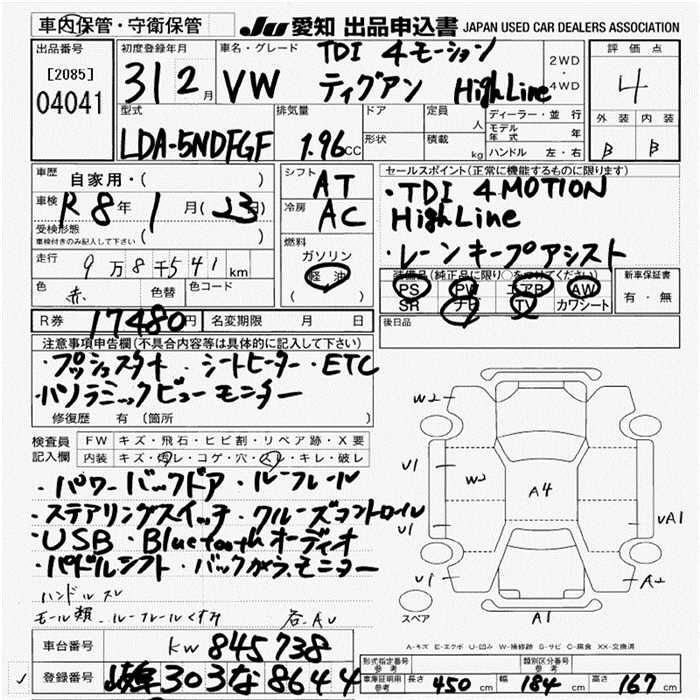 車内保管・守衛保管
JU 愛知 出品申込書 JAPAN USED CAR DEALERS ASSOCIATION
出品番号
[2085]
04041
初度登録年月
31 2月
車名・グレード
VW TDI 4モーション
ティグアン HighLine
2WD
・
4WD
評価点
4
外装 内装
B B
型式
LDA-5NDFGF
排気量
1.96cc
ドア
定員
人
形状
積載
kg
ディーラー・並行
モデル年式 年
ハンドル 左・右
車歴
自家用・(
車検
R8年 1月(23)
受検形態
車検付きのみ記入して下さい
走行
9万8千541km
色
赤
色替
色コード
シフト
AT
冷房
AC
燃料
ガソリン
軽油
( )
セールスポイント(正常に機能するものに限ります)
・TDI 4MOTION
HighLine
・レーンキープアシスト
装備品(純正品に限り○をつけてください)
PS PW エアB AW
SR ナビ TV カワシート
新車保証書
有・無
後日品
R券 17480円 名変期限 月 日
注意事項申告欄(不具合内容等は具体的に記入して下さい)
・プッシュスタート・シートヒーター・ETC
・パノラミックビューモニター
修復歴 有(箇所
検査員
記入欄
FW キズ・飛石・ヒビ割・リペア跡・X要
内装 キズ・汚レ・コゲ・穴・スレ・キレ・破レ
・パワーバックドア・ルーフレール
・ステアリングスイッチ・クルーズコントロール
・USB・Bluetoothオーディオ
・パドルシフト・バックカメラ、モニター
ハンドルスレ
モール類・ルーフレールくすみ 各AU
W2
U1
W2
A4
U1
UA1
U1
A2
A1
スペア
A-キズ E-エクボ U-凹み W-補修跡 S-サビ C-腐食 XX-交換済
車台番号 KW 845738
登録番号 岐阜303な8644
形式指定番号
参考
類別区分番号
参考
車庫証明用
参考
長さ 450cm 幅 184cm 高さ 167cm